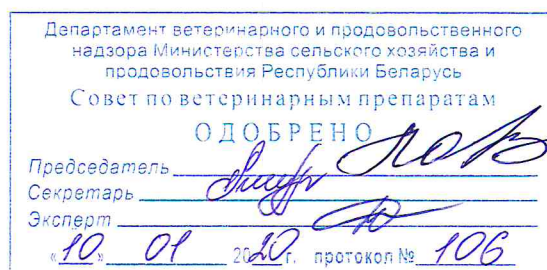 Департамент ветеринарного и продовольственного
надзора Министерства сельского хозяйства и
продовольствия Республики Беларусь
Совет по ветеринарным препаратам
ОДОБРЕНО
Председатель
Секретарь
Эксперт
«10» 01 2020г. протокол № 106